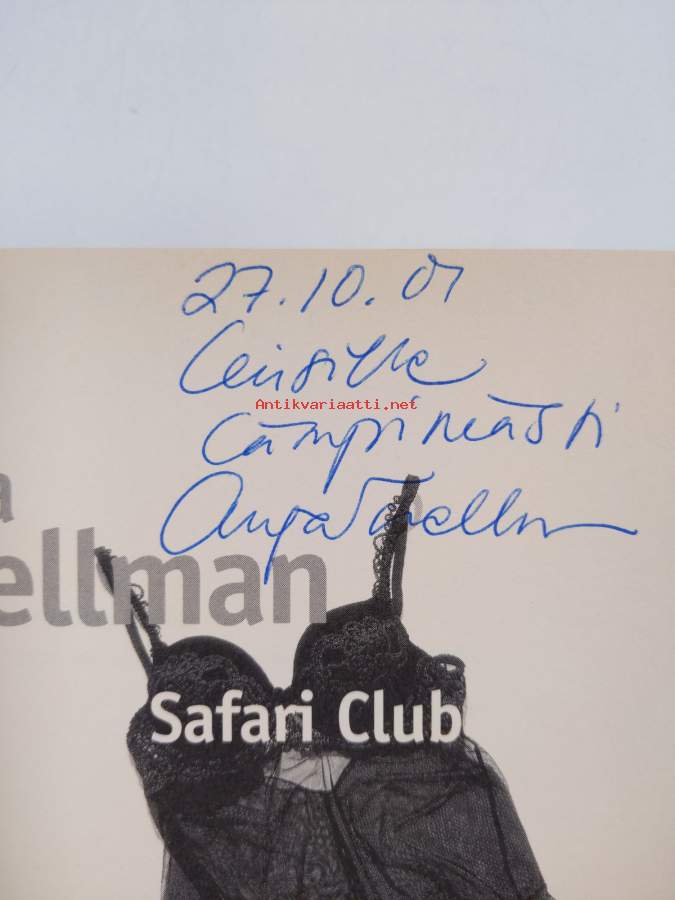 27.10.01
Leisille
Antikvariaatti.net
lämpimästi
Anja Snellman
a
ellman
Safari Club